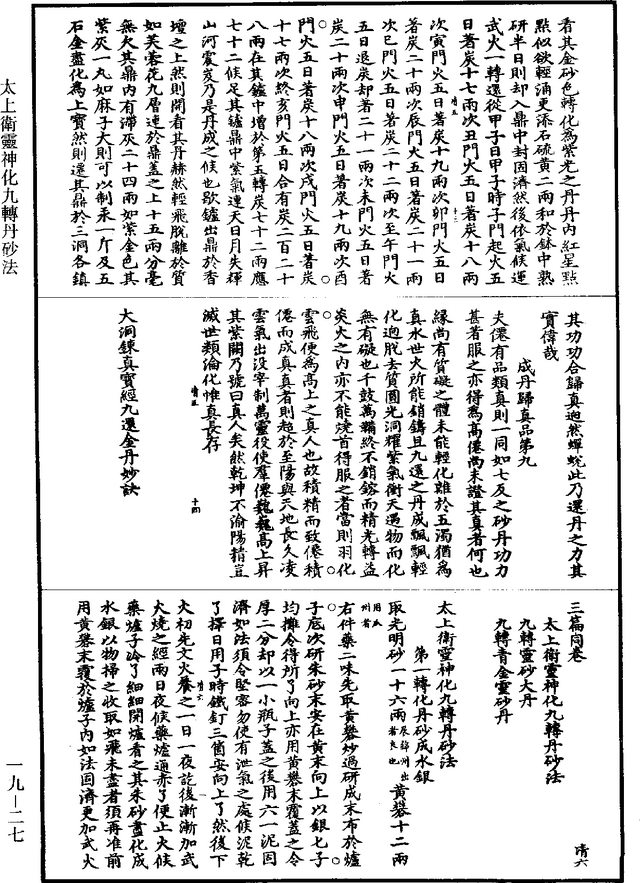 看其金砂色轉化為紫光之丹丹內紅星點
點似欲輕涌更添石硫黃二兩和於鉢中熟
研半日則却入鼎中封固濟然後依氣候運
武火一轉還從甲子日甲子時子門起火五
日著炭十七兩次丑門火五日著炭十八兩
次寅門火五日著炭十九兩次卯門火五日
清五
十三
著炭二十兩次辰門火五日著炭二十一兩
次巳門火五日著炭二十二兩次至午門火
五日退炭却著二十一兩次未門火五日著
炭二十兩次申門火五日著炭十九兩次酉
門火五日著炭十八兩次戌門火五日著炭
十七兩次終亥門火五日合有炭二百二十
八兩在其鑪中增於第五轉炭七十二兩應
七十二候足其鑪鼎中紫氣連天日月失輝
山河震岌乃是丹成之候也歇鑪出鼎於香
壇之上然則開看其丹赫然輕飛脫離於質
如芙蓉花九層連於鼎蓋之上十五兩分毫
無欠其鼎內有滯灰二十四兩如紫金色其
紫灰一丸如麻子大則可以制汞一斤及五
石金盡化為上寶然則還其鼎於三洞各鎮
其功功合歸真迥然蟬蛻此乃還丹之力其
寶偉哉
成丹歸真品第九
夫僊有品類真則一同如七反之砂丹功力
甚著服之亦得為高僊尚未證其真者何也
緣尚有質礙之體未能輕化離於五濁猶為
真水世火所能銷鑄且九還之丹成飄飄輕
化迥脫去質圓光洞耀紫氣衝天遇物而化
無有礙也千鼓萬鞴終不銷鎔而精光轉益
炎火之內亦不能燒首得服之者當則羽化
雲飛便為高上之真人也故積精而致僊積
僊而成真真者則超於至陽與天地長久凌
雲氣出沒宰制萬靈役使羣僊巍巍高上昇
其紫闕乃號曰真人矣然乾坤不渝陽精豈
滅世類淪化惟真長存
清五
十四
大洞鍊真寶經九還金丹妙訣
三篇同卷
清六
太上衛靈神化九轉丹砂法
九轉靈砂大丹
九轉青金靈砂丹
太上衛靈神化九轉丹砂法
第一轉化丹砂成水銀
取光明砂一十六兩辰錦州出者良也黃礬十二兩
用瓜州者
右件藥二味先取黃礬炒過研成末布於爐
子底次研朱砂末安在黃末向上以銀七子
均攤令得所了向上亦用黃礬末覆蓋之令
厚二分却以一小瓶子蓋之後用六一泥固
濟如法須令堅密勿使有泄氣之處候泥乾
了擇日用子時鐵釘三箇安向上了然後下
火初先文火養之一日一夜訖後漸漸加武
清六
火燒之經兩日夜候藥爐通赤了便止火候
藥爐子冷了細細開爐看之其朱砂盡化成
水銀以物掃之收取如飛未盡者須再准前
用黃礬末覆於爐子內如法固濟更加武火
太上衛靈神化九轉丹砂法
一九—二七